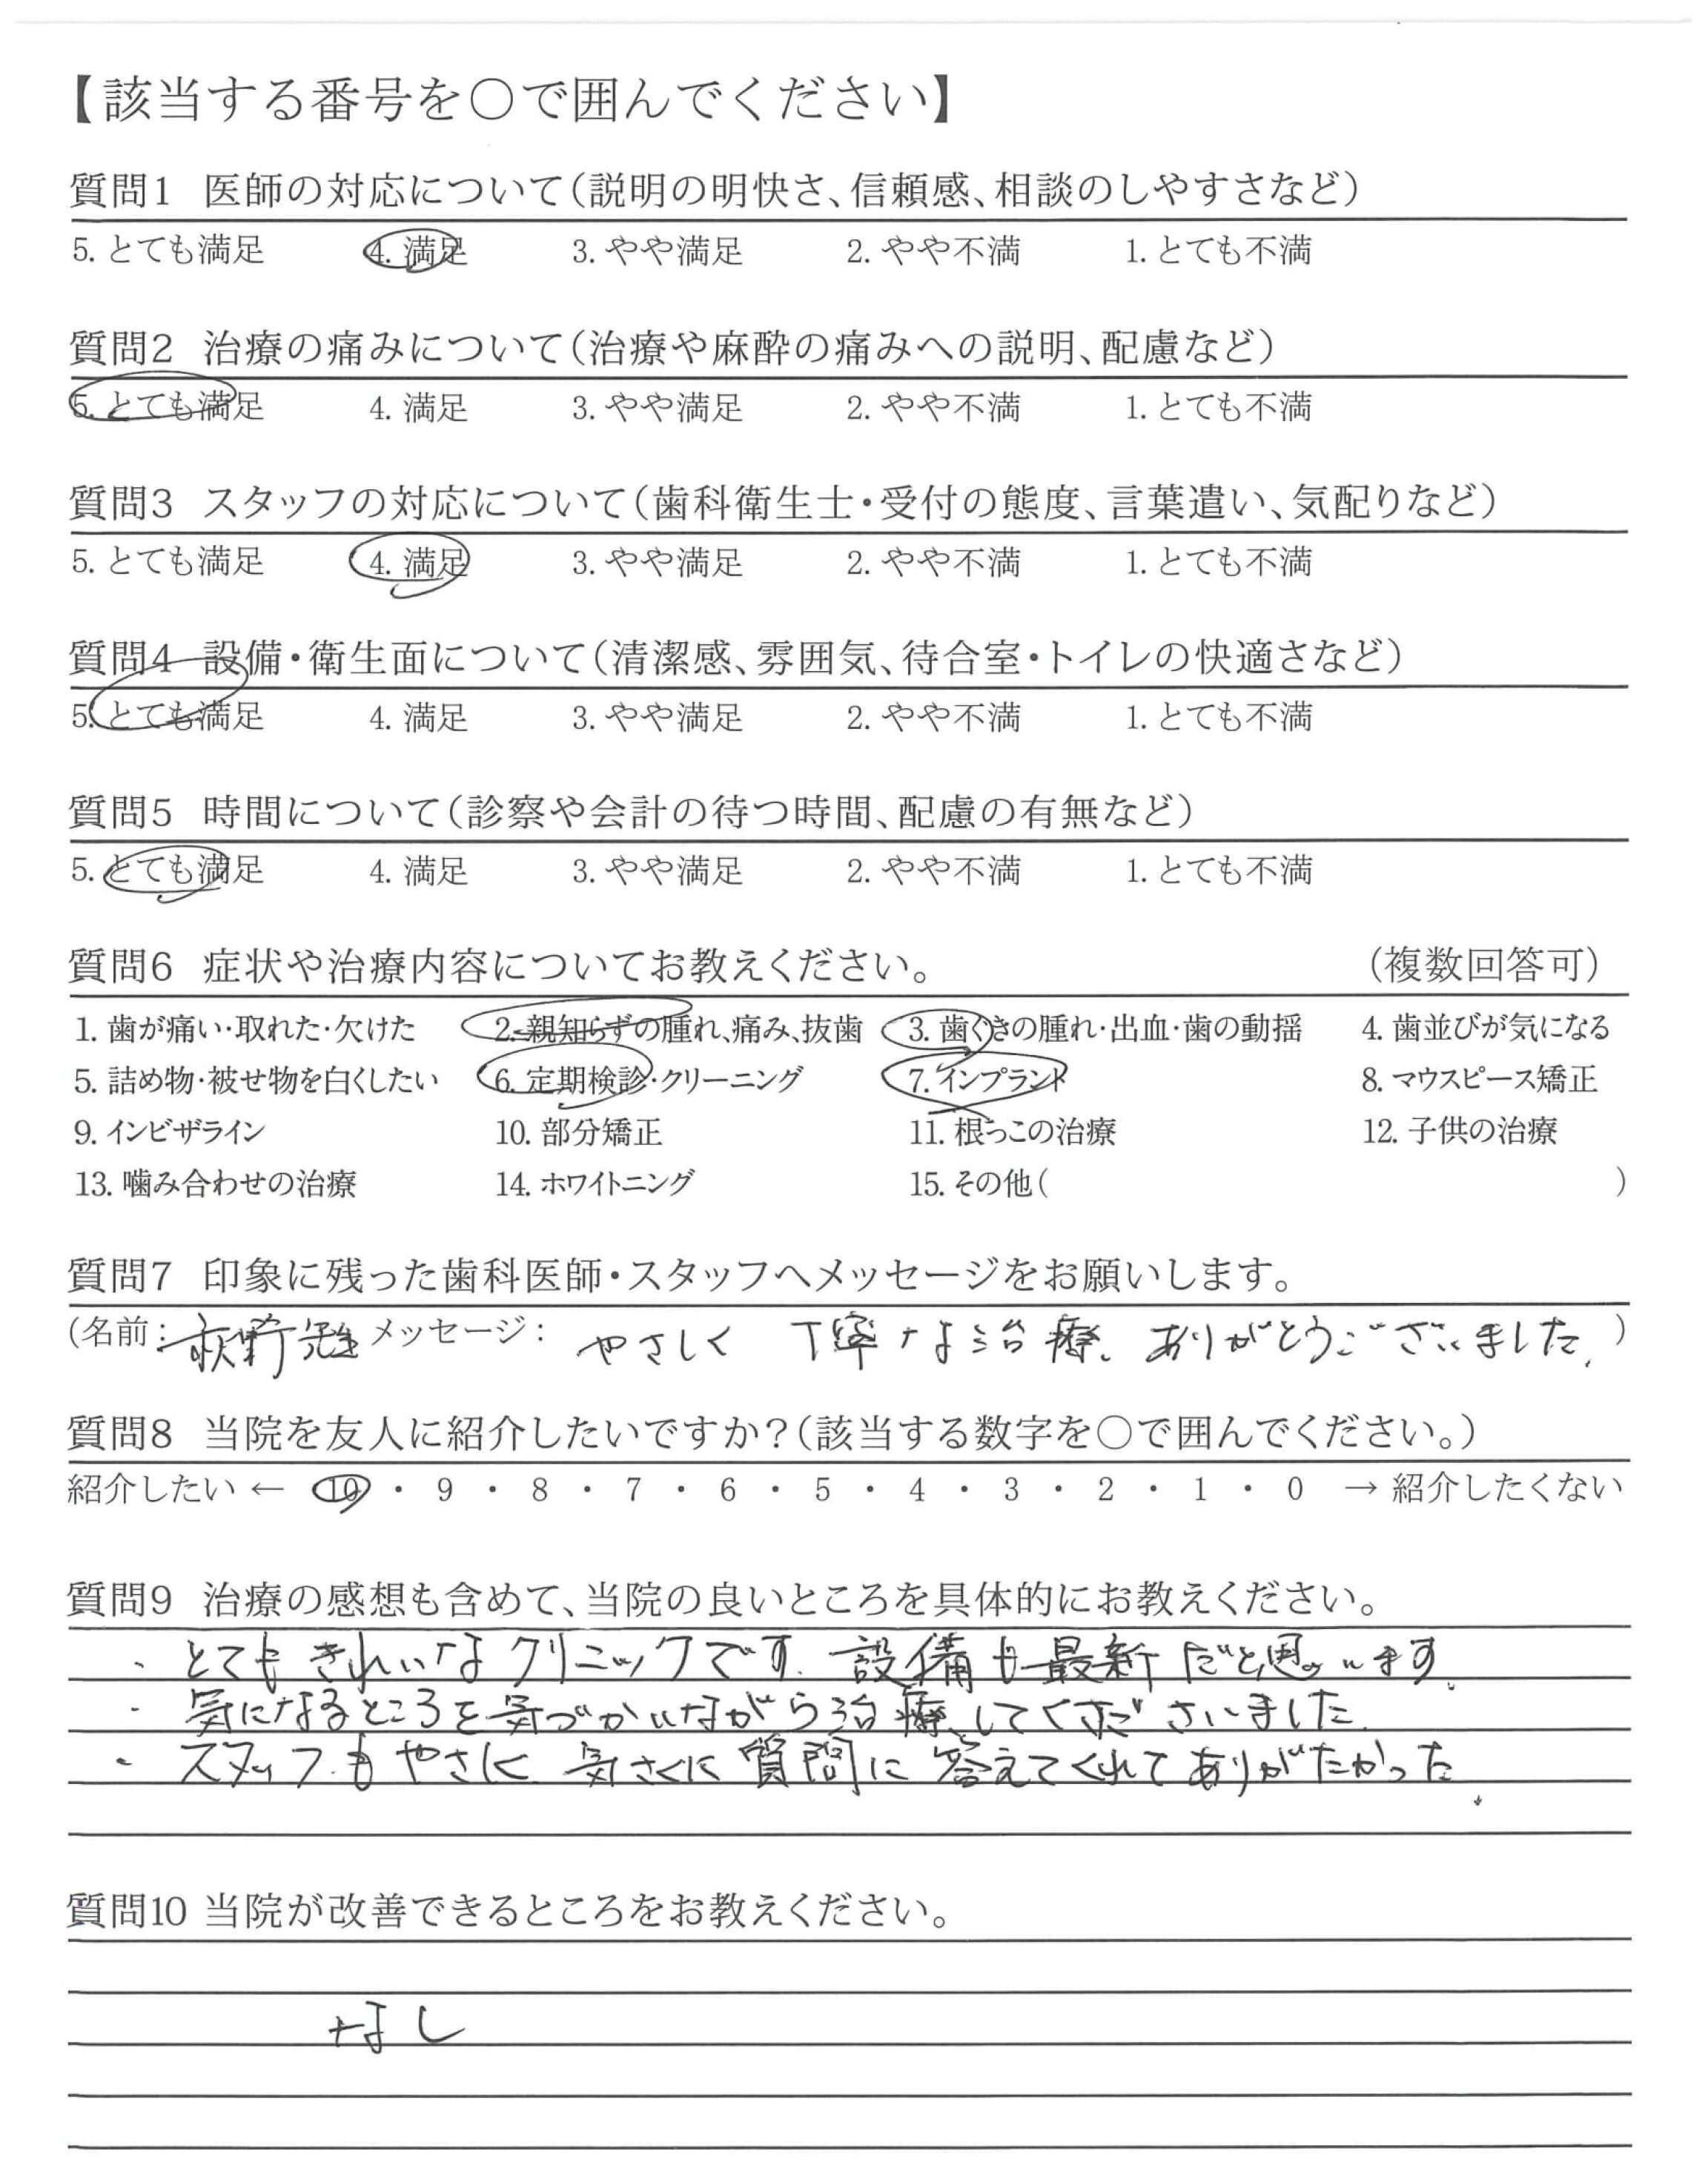 【該当する番号を○で囲んでください】
質問1 医師の対応について(説明の明快さ、信頼感、相談のしやすさなど)
5. とても満足 4. 満足 3. やや満足 2. やや不満 1. とても不満
質問2 治療の痛みについて(治療や麻酔の痛みへの説明、配慮など)
5. とても満足 4. 満足 3. やや満足 2. やや不満 1. とても不満
質問3 スタッフの対応について(歯科衛生士・受付の態度、言葉遣い、気配りなど)
5. とても満足 4. 満足 3. やや満足 2. やや不満 1. とても不満
質問4 設備・衛生面について(清潔感、雰囲気、待合室・トイレの快適さなど)
5. とても満足 4. 満足 3. やや満足 2. やや不満 1. とても不満
質問5 時間について(診察や会計の待つ時間、配慮の有無など)
5. とても満足 4. 満足 3. やや満足 2. やや不満 1. とても不満
質問6 症状や治療内容についてお教えください。 (複数回答可)
1. 歯が痛い・取れた・欠けた 2. 親知らずの腫れ、痛み、抜歯 3. 歯ぐきの腫れ・出血・歯の動揺 4. 歯並びが気になる
5. 詰め物・被せ物を白くしたい 6. 定期検診・クリーニング 7. インプラント 8. マウスピース矯正
9. インビザライン 10. 部分矯正 11. 根っこの治療 12. 子供の治療
13. 噛み合わせの治療 14. ホワイトニング 15. その他( )
質問7 印象に残った歯科医師・スタッフへメッセージをお願いします。
(名前: 荻野先生 メッセージ: やさしく 丁寧な治療、ありがとうございました。)
質問8 当院を友人に紹介したいですか?(該当する数字を○で囲んでください。)
紹介したい ← 10 ・ 9 ・ 8 ・ 7 ・ 6 ・ 5 ・ 4 ・ 3 ・ 2 ・ 1 ・ 0 → 紹介したくない
質問9 治療の感想も含めて、当院の良いところを具体的にお教えください。
・ とてもきれいなクリニックです。設備も最新だと思います。
・ 気になるところを気づかいながら治療してくださいました。
・ スタッフもやさしく 気さくに質問に答えてくれてありがたかった。
質問10 当院が改善できるところをお教えください。
なし